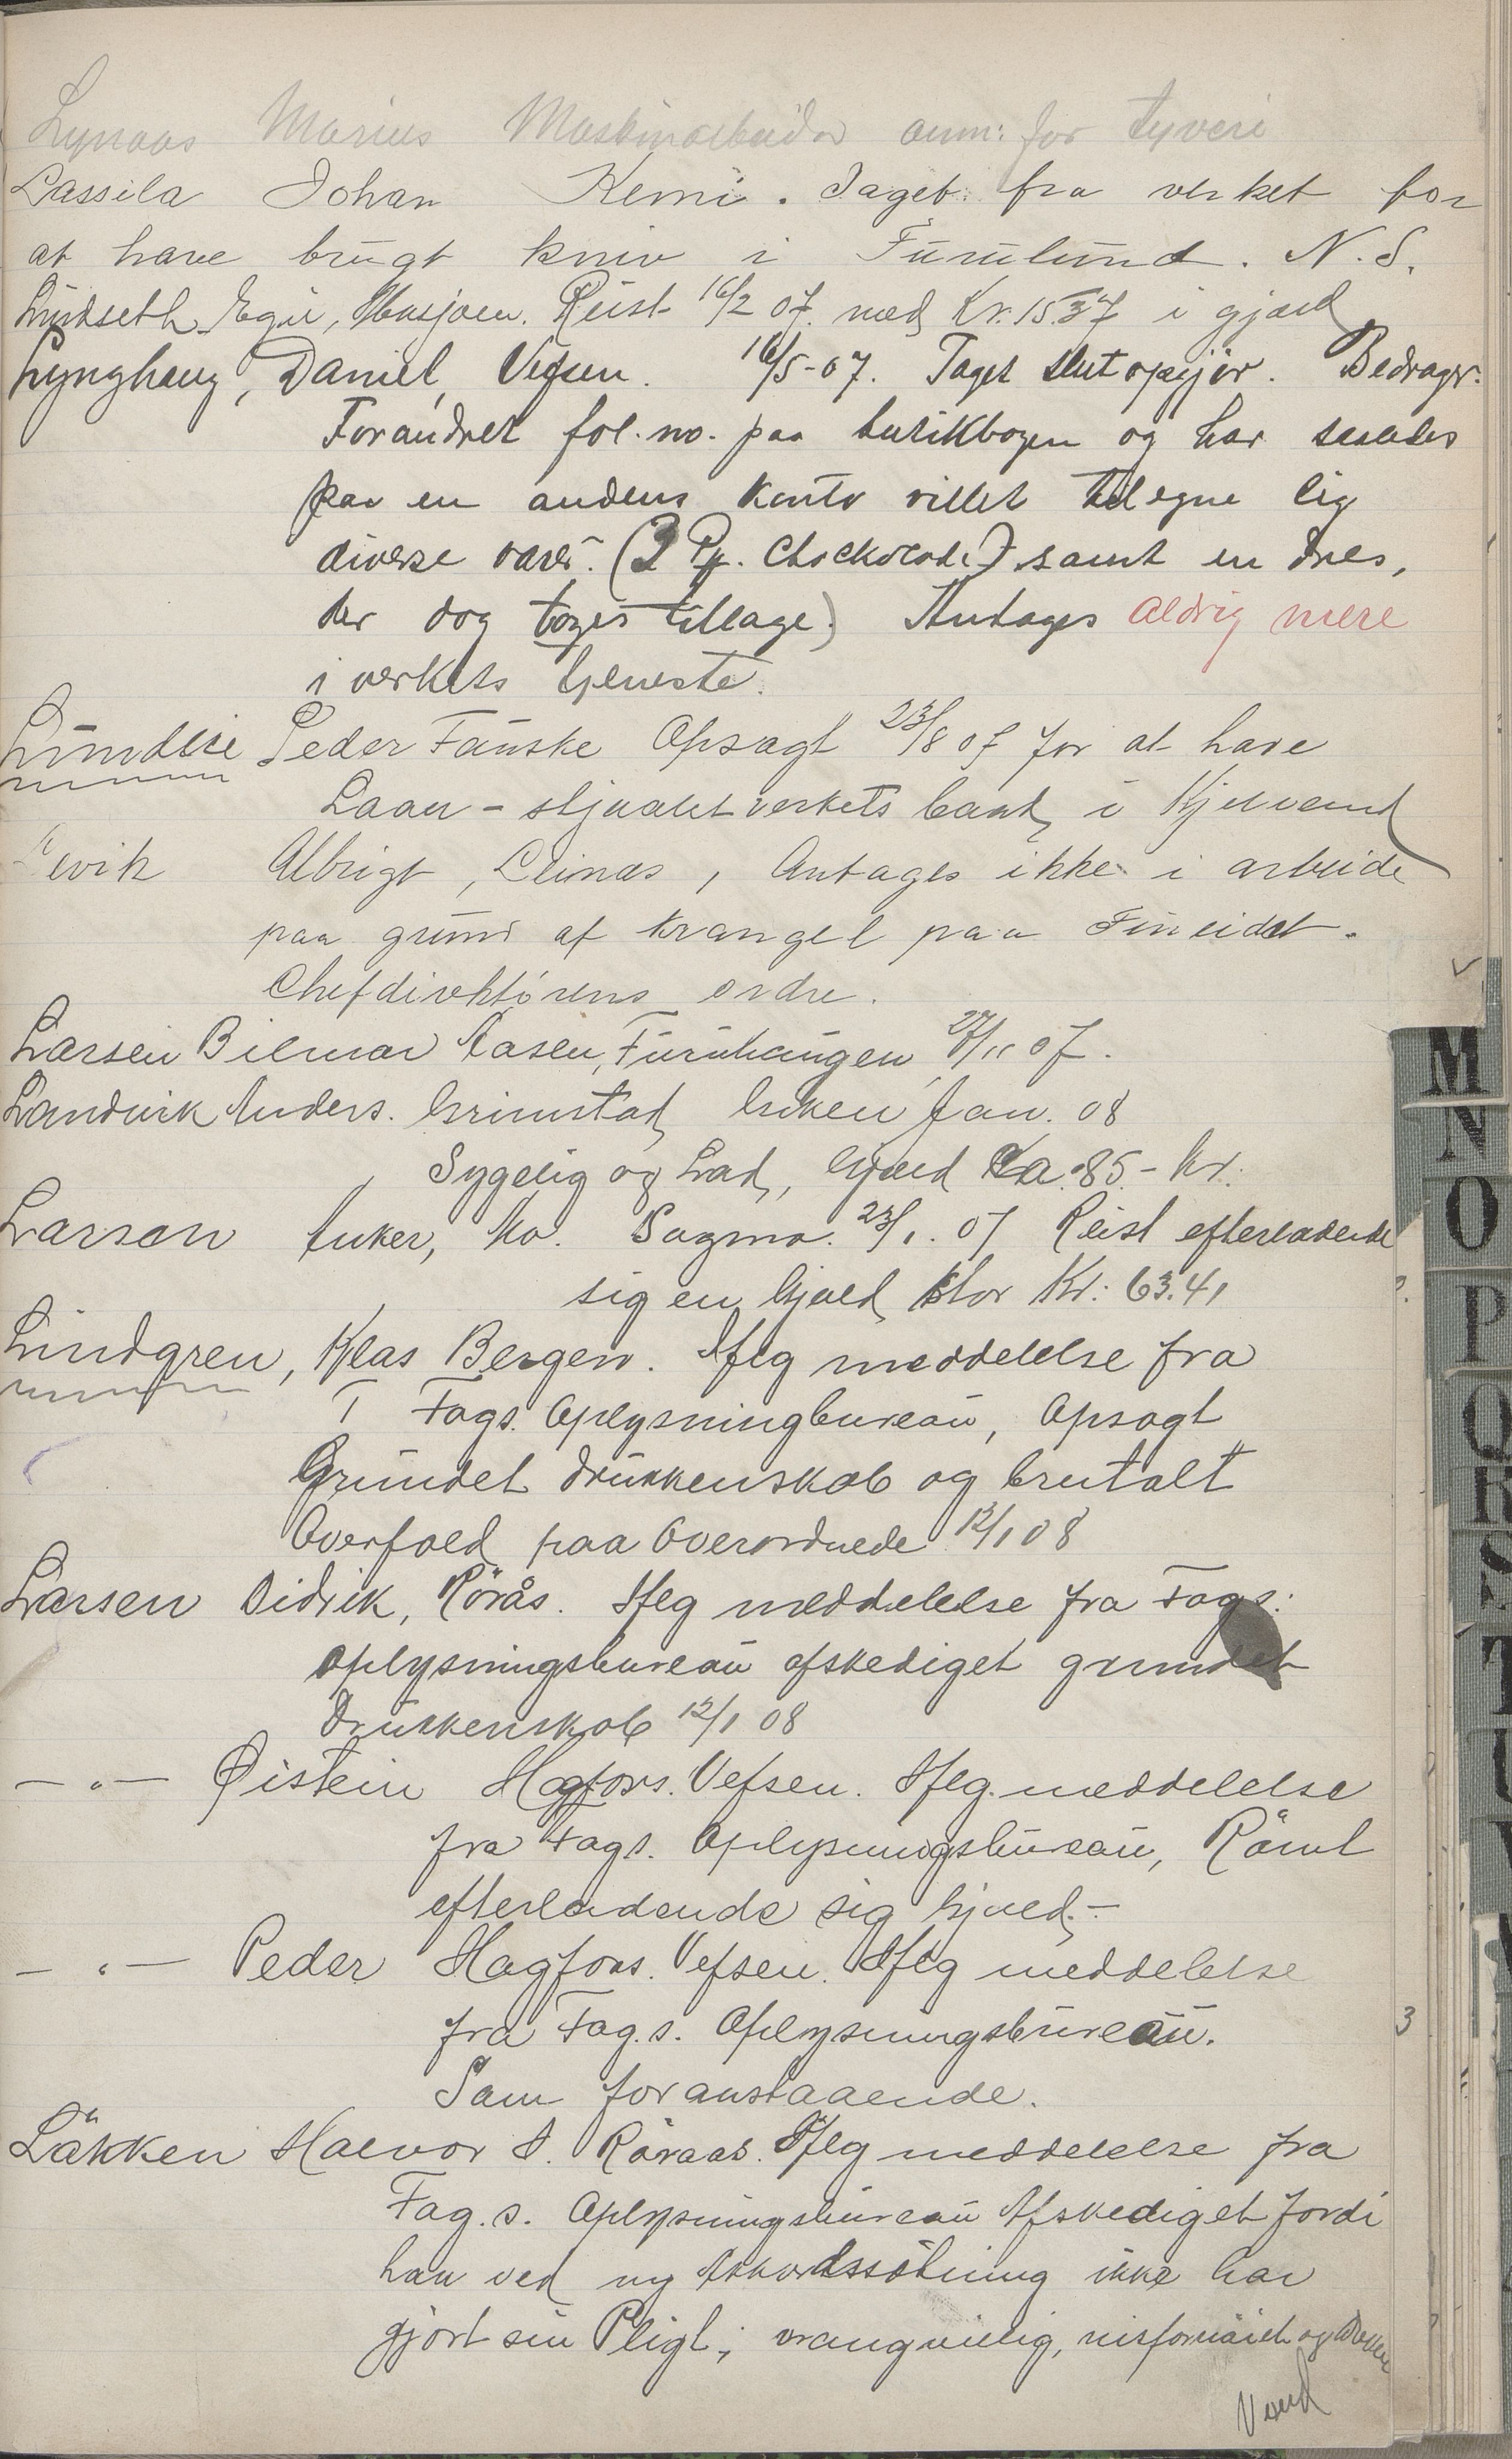 Lynaas Marius Maskinarbeider anm: for tyveri
Lassila Johan Kemi. Jaget fra verket for
at have brugt kniv i Furulund. N.S.
Lindseth Egil, Mosjøen. Reist 16/2 07 med Kr. 15.37 i gjæld
Lynghaug, Daniel, Vefsen. 16/5-07. Taget slutopgjør. Bedrager.
Forandret fol. no. paa butikbogen og har saaledes
paa en andens konto villet tilegne sig
diverse varer. (2 Pk. Chockolade) samt en dres,
der dog toges tillage) Antages aldrig mere
i verkets tjeneste.
Lund Peder Fauske Opsagt 23/8 07 for at have
Laan - stjaalet verkets baad i Kjelvand
Levik Albrigt, Leines, Antages ikke i arbeide
paa grund af krangel paa Fineidet.
Chefdirektørens ordre.
Larsen Hilmar Aasen, Furuhaugen 27/11 07.
Landvik Anders. Grimstad Jan. 08
Sygelig og Lad, Gjæld Ca. 85.- Kr.
Larsen Anker, Mo. Sagmo. 23/1. 07 Reist efterladende
sig en Gjæld stor Kr: 63.41
Lindgren, Klas Bergen. Iflg meddelelse fra
T Fags. Oplysningbureau, Opsagt
Grundet drukkenskab og brutalt
Overfald paa Overordnede 12/1 08
Larsen Didrik, Rörås. Iflg meddelelse fra Fags:
Oplysningsbureau afskediget grundet
Drukkenskab 12/1 08
- " - Øistein Hagfors. Vefsen. Iflg. meddelelse
fra Fags. Oplysningsbureau, Römt
efterladende sig Gjæld.-
- " - Peder Hagfors. Vefsen. Iflg meddelelse
fra Fag.s. Oplysningsbureau.
Som foranstaaende.
Läkken Halvor S. Röraas. Iflg meddelelse fra
Fag.s. Oplysningsbureau Afskediget fordi
han ved ny Akkordssätning ikke har
gjort sin Pligt; vrangvillig, misfornöiet og
Vend
M
N
O
P
Q
R
S
T
U
V
3